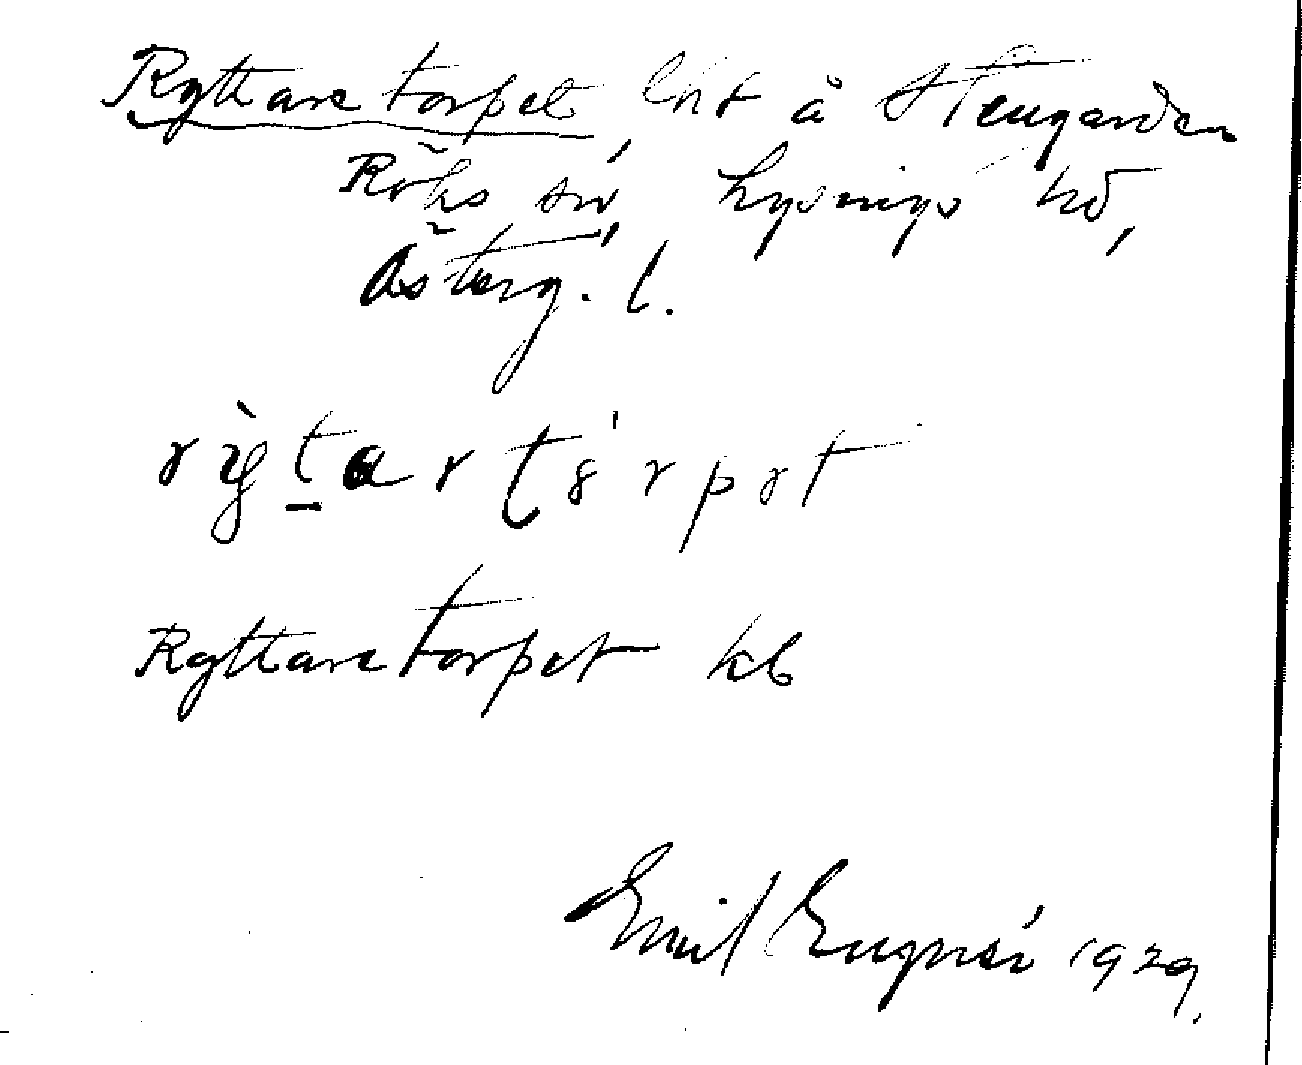 Ryttaretorpet, lht å Stengården
Röks sn, Lysings hd,
Österg. l.
rỳtartórpət
Ryttaretorpet kb
Emil Eugnér 1929.